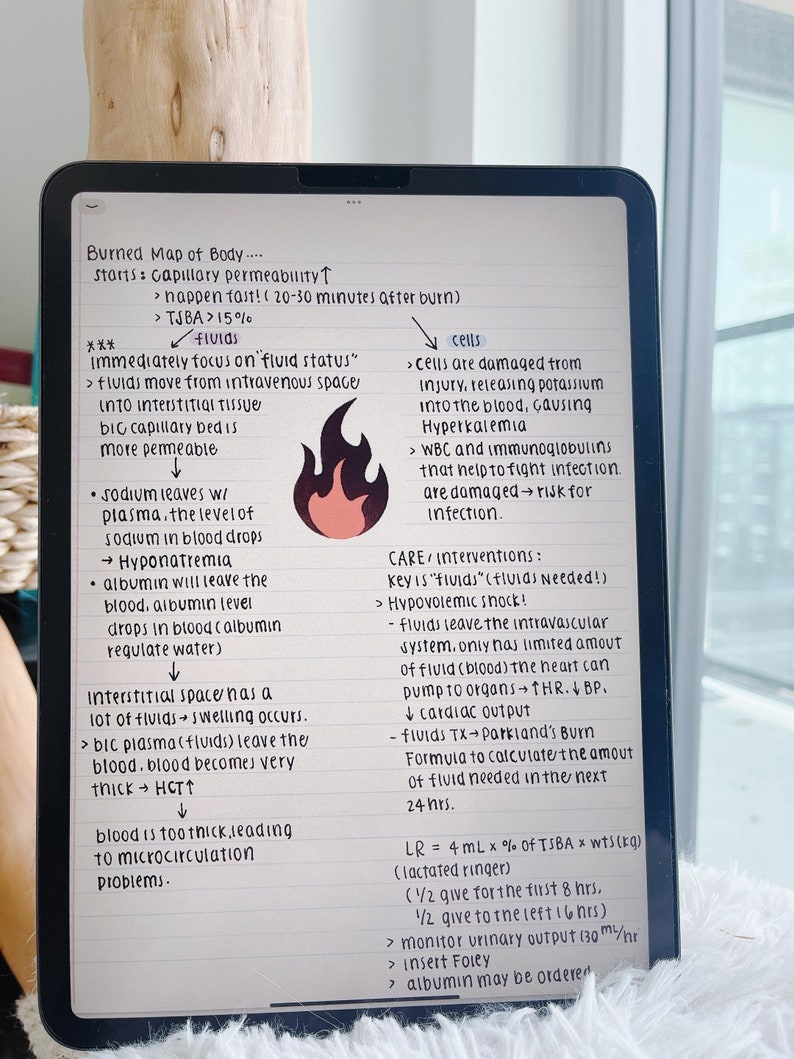 Burned Map of Body....
starts: capillary permeability↑
> happen fast! (20-30 minutes after burn)
> TJBA > 15%
*** fluids
immediately focus on "fluid status"
> fluids move from intravenous space
into interstitial tissue
b/c capillary bed is
more permeable
↓
• sodium leaves w/
plasma, the level of
sodium in blood drops
→ Hyponatremia
• albumin will leave the
blood, albumin level
drops in blood (albumin
regulate water)
↓
interstitial space has a
lot of fluids → swelling occurs.
> b/c plasma (fluids) leave the
blood, blood becomes very
thick → HCT↑
↓
blood is too thick, leading
to microcirculation
problems.
cells
> cells are damaged from
injury, releasing potassium
into the blood, causing
Hyperkalemia
> WBC and immunoglobulins
that help to fight infection.
are damaged → risk for
infection.
CARE/interventions:
Key is "fluids" (fluids Needed!)
> Hypovolemic shock!
- fluids leave the intravascular
system, only has limited amout
of fluid (blood) the heart can
pump to organs → ↑HR. ↓BP.
↓ cardiac output
- fluids TX → Parkland's Burn
Formula to calculate the amout
of fluid needed in the next
24 hrs.
LR = 4 mL × % of TJBA × wts (kg)
(lactated ringer)
(1/2 give for the first 8 hrs,
1/2 give to the left 16 hrs)
> monitor urinary output (30 mL/hr
> insert Foley
> albumin may be ordered